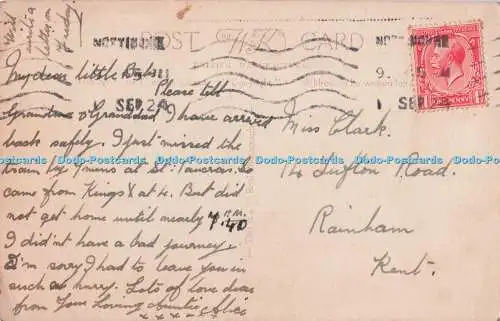 Will
write a
letter on
Friday
POST CARD
My dear little Babs.
Please tell
Grandma & Granddad I have arrived
back safely. I just missed the
train by 7 mins at St. Pancras. So
came from Kings X at 4. But did
not get home until nearly 7.40 P.M.
I didn't have a bad journey.
I'm sorry I had to leave you in
such a hurry. Lots of love dear
from Your Loving Auntie Alice
x x x x x
Miss Clark.
14 Sufton Road.
Rainham
Kent.
SEP 24
SEP
ONE PENNY
Dodo-Postcards Dodo-Postcards Dodo-Postcards Dodo-Postcards Dodo-Postcards Dodo-Postcards